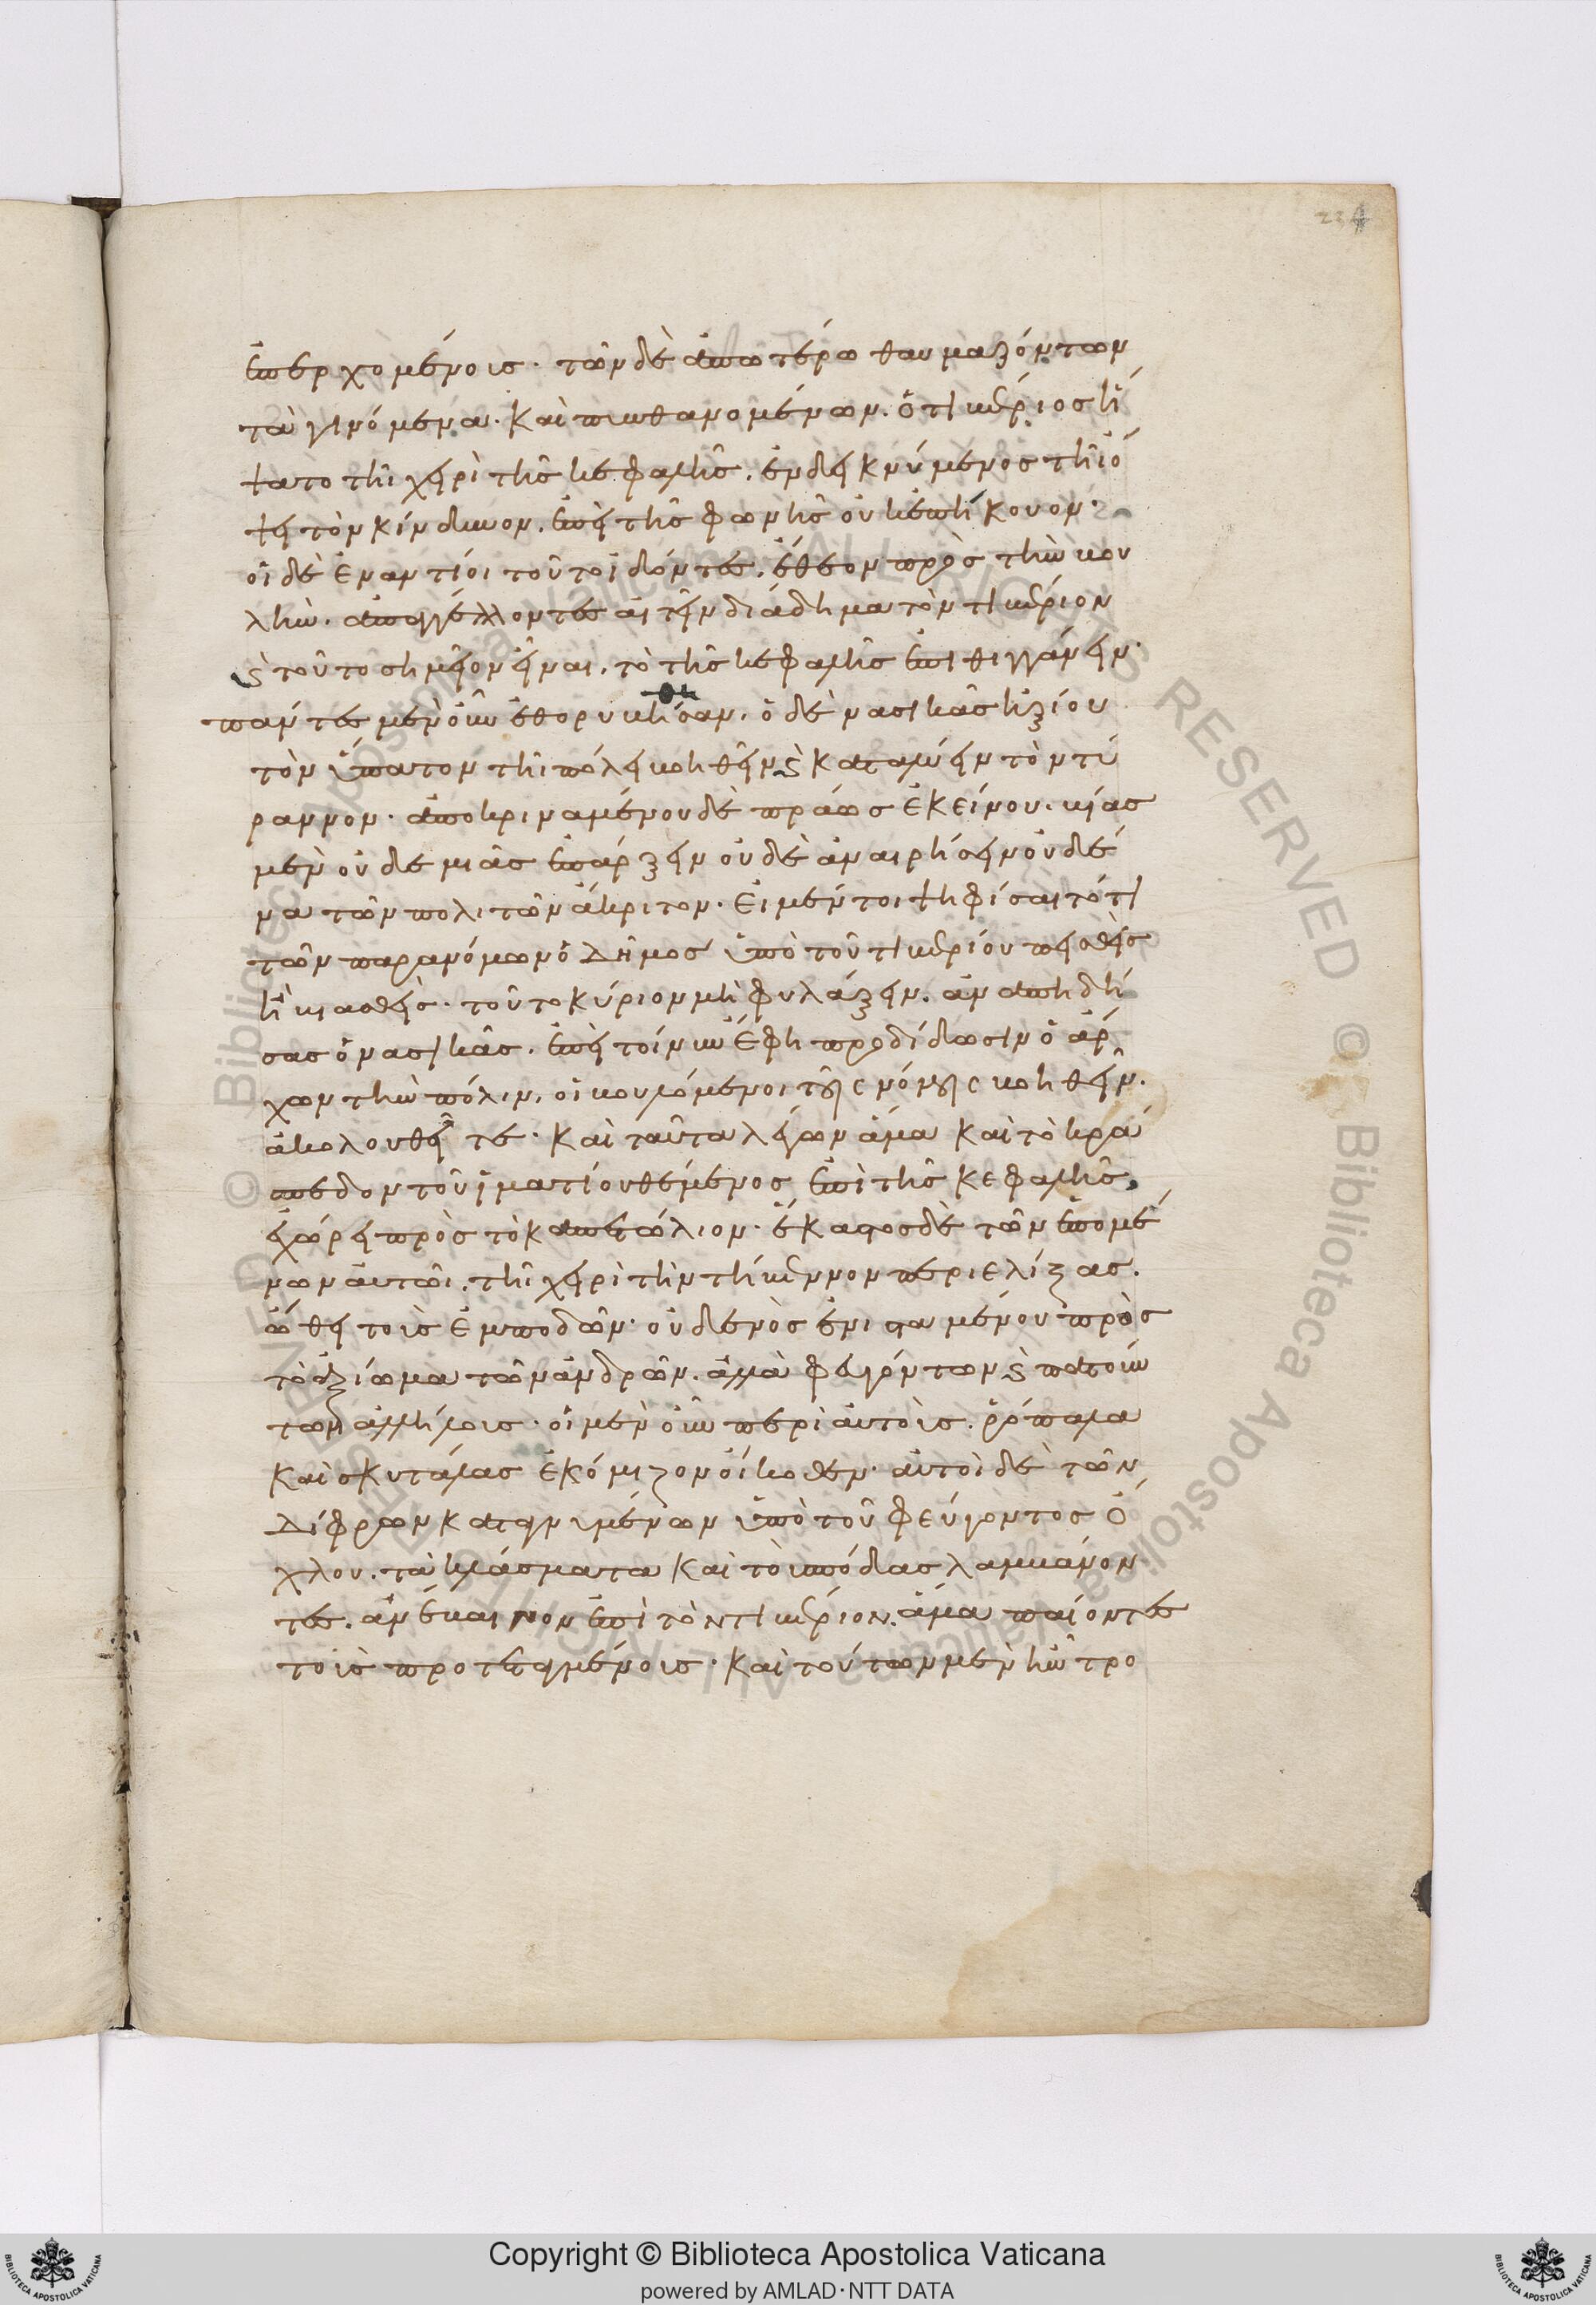 ἐπερχομένοις· τῶν δὲ ἀπωτέρω θαυμαζόντων
τὰ γινόμενα· καὶ πυνθανομένων. ὁ τιβέριος ἥ
ψατο τῆι χειρὶ τῆς κεφαλῆς. ἐνδεικνύμενος τῆι ὄ
ψει τὸν κίνδυνον. ἐπεὶ τῆς φωνῆς οὐκ ἐπήκουον·
οἱ δὲ ἐναντίοι τοῦτο ἰδόντες. ἔθεον πρὸς τὴν βου
λὴν. ἀπαγγέλλοντες αἰτεῖν διάδημα τὸν τιβέριον
ϛ τοῦτο σημεῖον εἶναι. τὸ τῆς κεφαλῆς ἐπιθιγγάνειν·
πάντες μὲν οὖν ἐθορυβήθησαν. ὁ δὲ νασικᾶς ἠξίου
τὸν ὕπατον τῆι πόλει βοηθεῖν ϛ καταλύειν τὸν τύ
ραννον· ἀποκριναμένου δὲ πράως ἐκείνου. βίας
μὲν οὐδεμιᾶς ἐπάρξειν οὐδὲ ἀναιρήσειν οὐδέ
να τῶν πολιτῶν ἄκριτον· εἰ μέντοι ψηφίσαιτό τι
τῶν παρανόμων ὁ δῆμος ὑπὸ τοῦ τιβερίου πεισθεὶς
ἢ βιασθεὶς· τοῦτο κύριον μὴ φυλάξειν. ἀναπηδή
σας ὁ νασικᾶς. ἐπεὶ τοίνυν ἔφη προδίδωσιν ὁ ἄρ
χων τὴν πόλιν. οἱ βουλόμενοι τοῖς νόμοις βοηθεῖν.
ἀκολουθεῖτε· καὶ ταῦτα λέγων ἅμα καὶ τὸ κρά
σπεδον τοῦ ἱματίου θέμενος ἐπὶ τῆς κεφαλῆς.
ἐχώρει πρὸς τὸ καπετώλιον· ἕκαστος δὲ τῶν ἑπομέ
νων αὐτῶι. τῆι χειρὶ τὴν τήβεννον περιελίξας.
ὤθει τοὺς ἐμποδῶν· οὐδενὸς ἐνισταμένου πρὸς
τὸ ἀξίωμα τῶν ἀνδρῶν. ἀλλὰ φευγόντων ϛ πατούν
των ἀλλήλους· οἱ μὲν οὖν περὶ αὐτοὺς. ῥόπαλα
καὶ σκυτάλας ἐκόμιζον οἴκοθεν· αὐτοὶ δὲ τῶν
δίφρων καταγνυμένων ὑπὸ τοῦ φεύγοντος ὄ
χλου. τὰ κλάσματα καὶ τοὺς πόδας λαμβάνον
τες. ἀνέβαινον ἐπὶ τὸν τιβέριον. ἅμα παίοντες
τοὺς προτεταγμένους· καὶ τούτων μὲν ἦν τρο